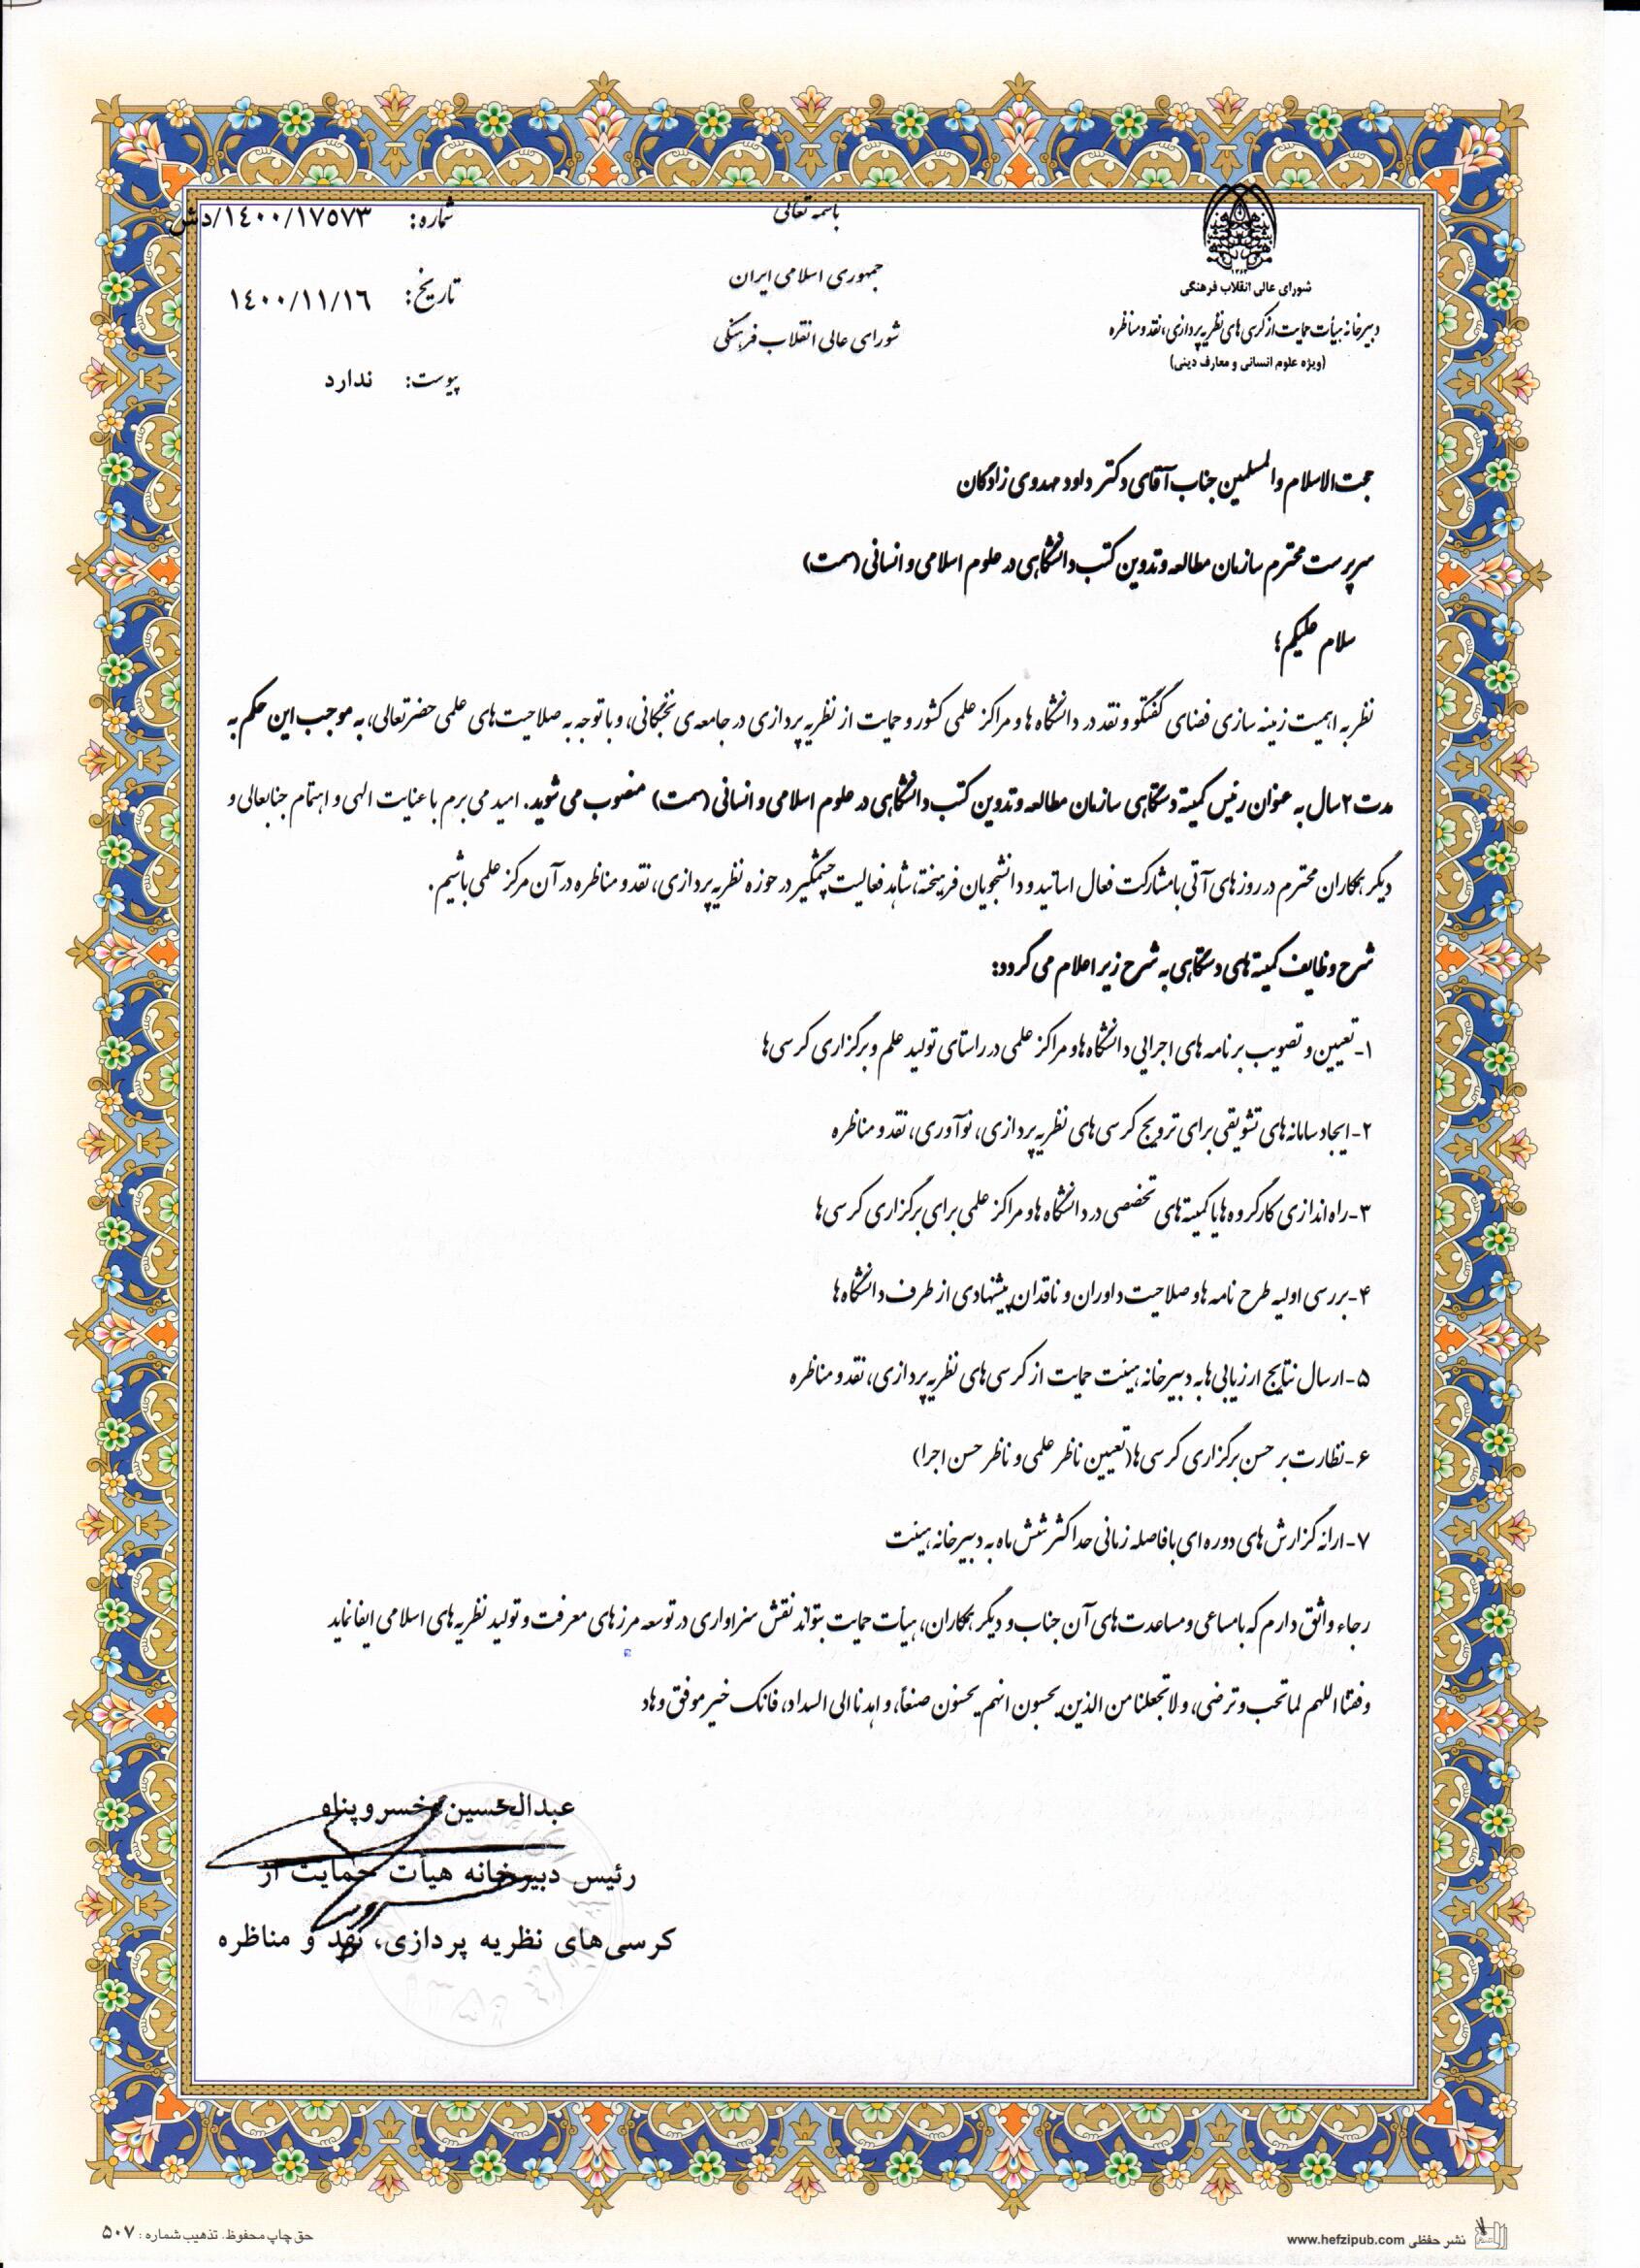 باسمه تعالی
جمهوری اسلامی ایران
شورای عالی انقلاب فرهنگی
۱۳۶۳
شورای عالی انقلاب فرهنگی
دبیرخانه هیأت حمایت از کرسی های نظریه پردازی، نقد و مناظره
(ویژه علوم انسانی و معارف دینی)
شماره: ۱۴۰۰/۱۷۵۷۳/دش
تاریخ: ۱۴۰۰/۱۱/۱۶
پیوست: ندارد
حجت الاسلام والمسلمین جناب آقای دکتر داود مهدوی زادگان
سرپرست محترم سازمان مطالعه و تدوین کتب دانشگاهی در علوم اسلامی و انسانی (سمت)
سلام علیکم؛
نظر به اهمیت زمینه سازی فضای گفتگو و نقد در دانشگاه ها و مراکز علمی کشور و حمایت از نظریه پردازی در جامعه ی نخبگانی، و با توجه به صلاحیت های علمی حضرتعالی، به موجب این حکم به
مدت ۲ سال به عنوان رئیس کمیته دستگاهی سازمان مطالعه و تدوین کتب دانشگاهی در علوم اسلامی و انسانی (سمت) منصوب می شوید. امید می برم با عنایت الهی و اهتمام جنابعالی و
دیگر همکاران محترم در روزهای آتی با مشارکت فعال اساتید و دانشجویان فرهیخته، شاهد فعالیت چشمگیر در حوزه نظریه پردازی، نقد و مناظره در آن مرکز علمی باشیم.
شرح وظایف کمیته های دستگاهی به شرح زیر اعلام می گردد:
۱- تعیین و تصویب برنامه های اجرایی دانشگاه ها و مراکز علمی در راستای تولید علم و برگزاری کرسی ها
۲- ایجاد سامانه های تشویقی برای ترویج کرسی های نظریه پردازی، نوآوری، نقد و مناظره
۳- راه اندازی کارگروه ها یا کمیته های تخصصی در دانشگاه ها و مراکز علمی برای برگزاری کرسی ها
۴- بررسی اولیه طرح نامه ها و صلاحیت داوران و ناقدان پیشنهادی از طرف دانشگاه ها
۵- ارسال نتایج ارزیابی ها به دبیرخانه هیئت حمایت از کرسی های نظریه پردازی، نقد و مناظره
۶- نظارت بر حسن برگزاری کرسی ها (تعیین ناظر علمی و ناظر حسن اجرا)
۷- ارائه گزارش های دوره ای با فاصله زمانی حداکثر شش ماه به دبیرخانه هیئت
رجاء واثق دارم که با مساعی و مساعدت های آن جناب و دیگر همکاران، هیأت حمایت بتواند نقش سزاواری در توسعه مرزهای معرفت و تولید نظریه های اسلامی ایفا نماید
وفقنا اللهم لما تحب و ترضی، و لا تجعلنا من الذین یحسبون انهم یحسنون صنعاً، و اهدنا الی السداد، فانک خیر موفق و هاد
عبدالحسین خسروپناه
رئیس دبیرخانه هیأت حمایت از
کرسی‌های نظریه پردازی، نقد و مناظره
نشر حفظی www.hefzipub.com
حق چاپ محفوظ. تذهیب شماره: ۵۰۷